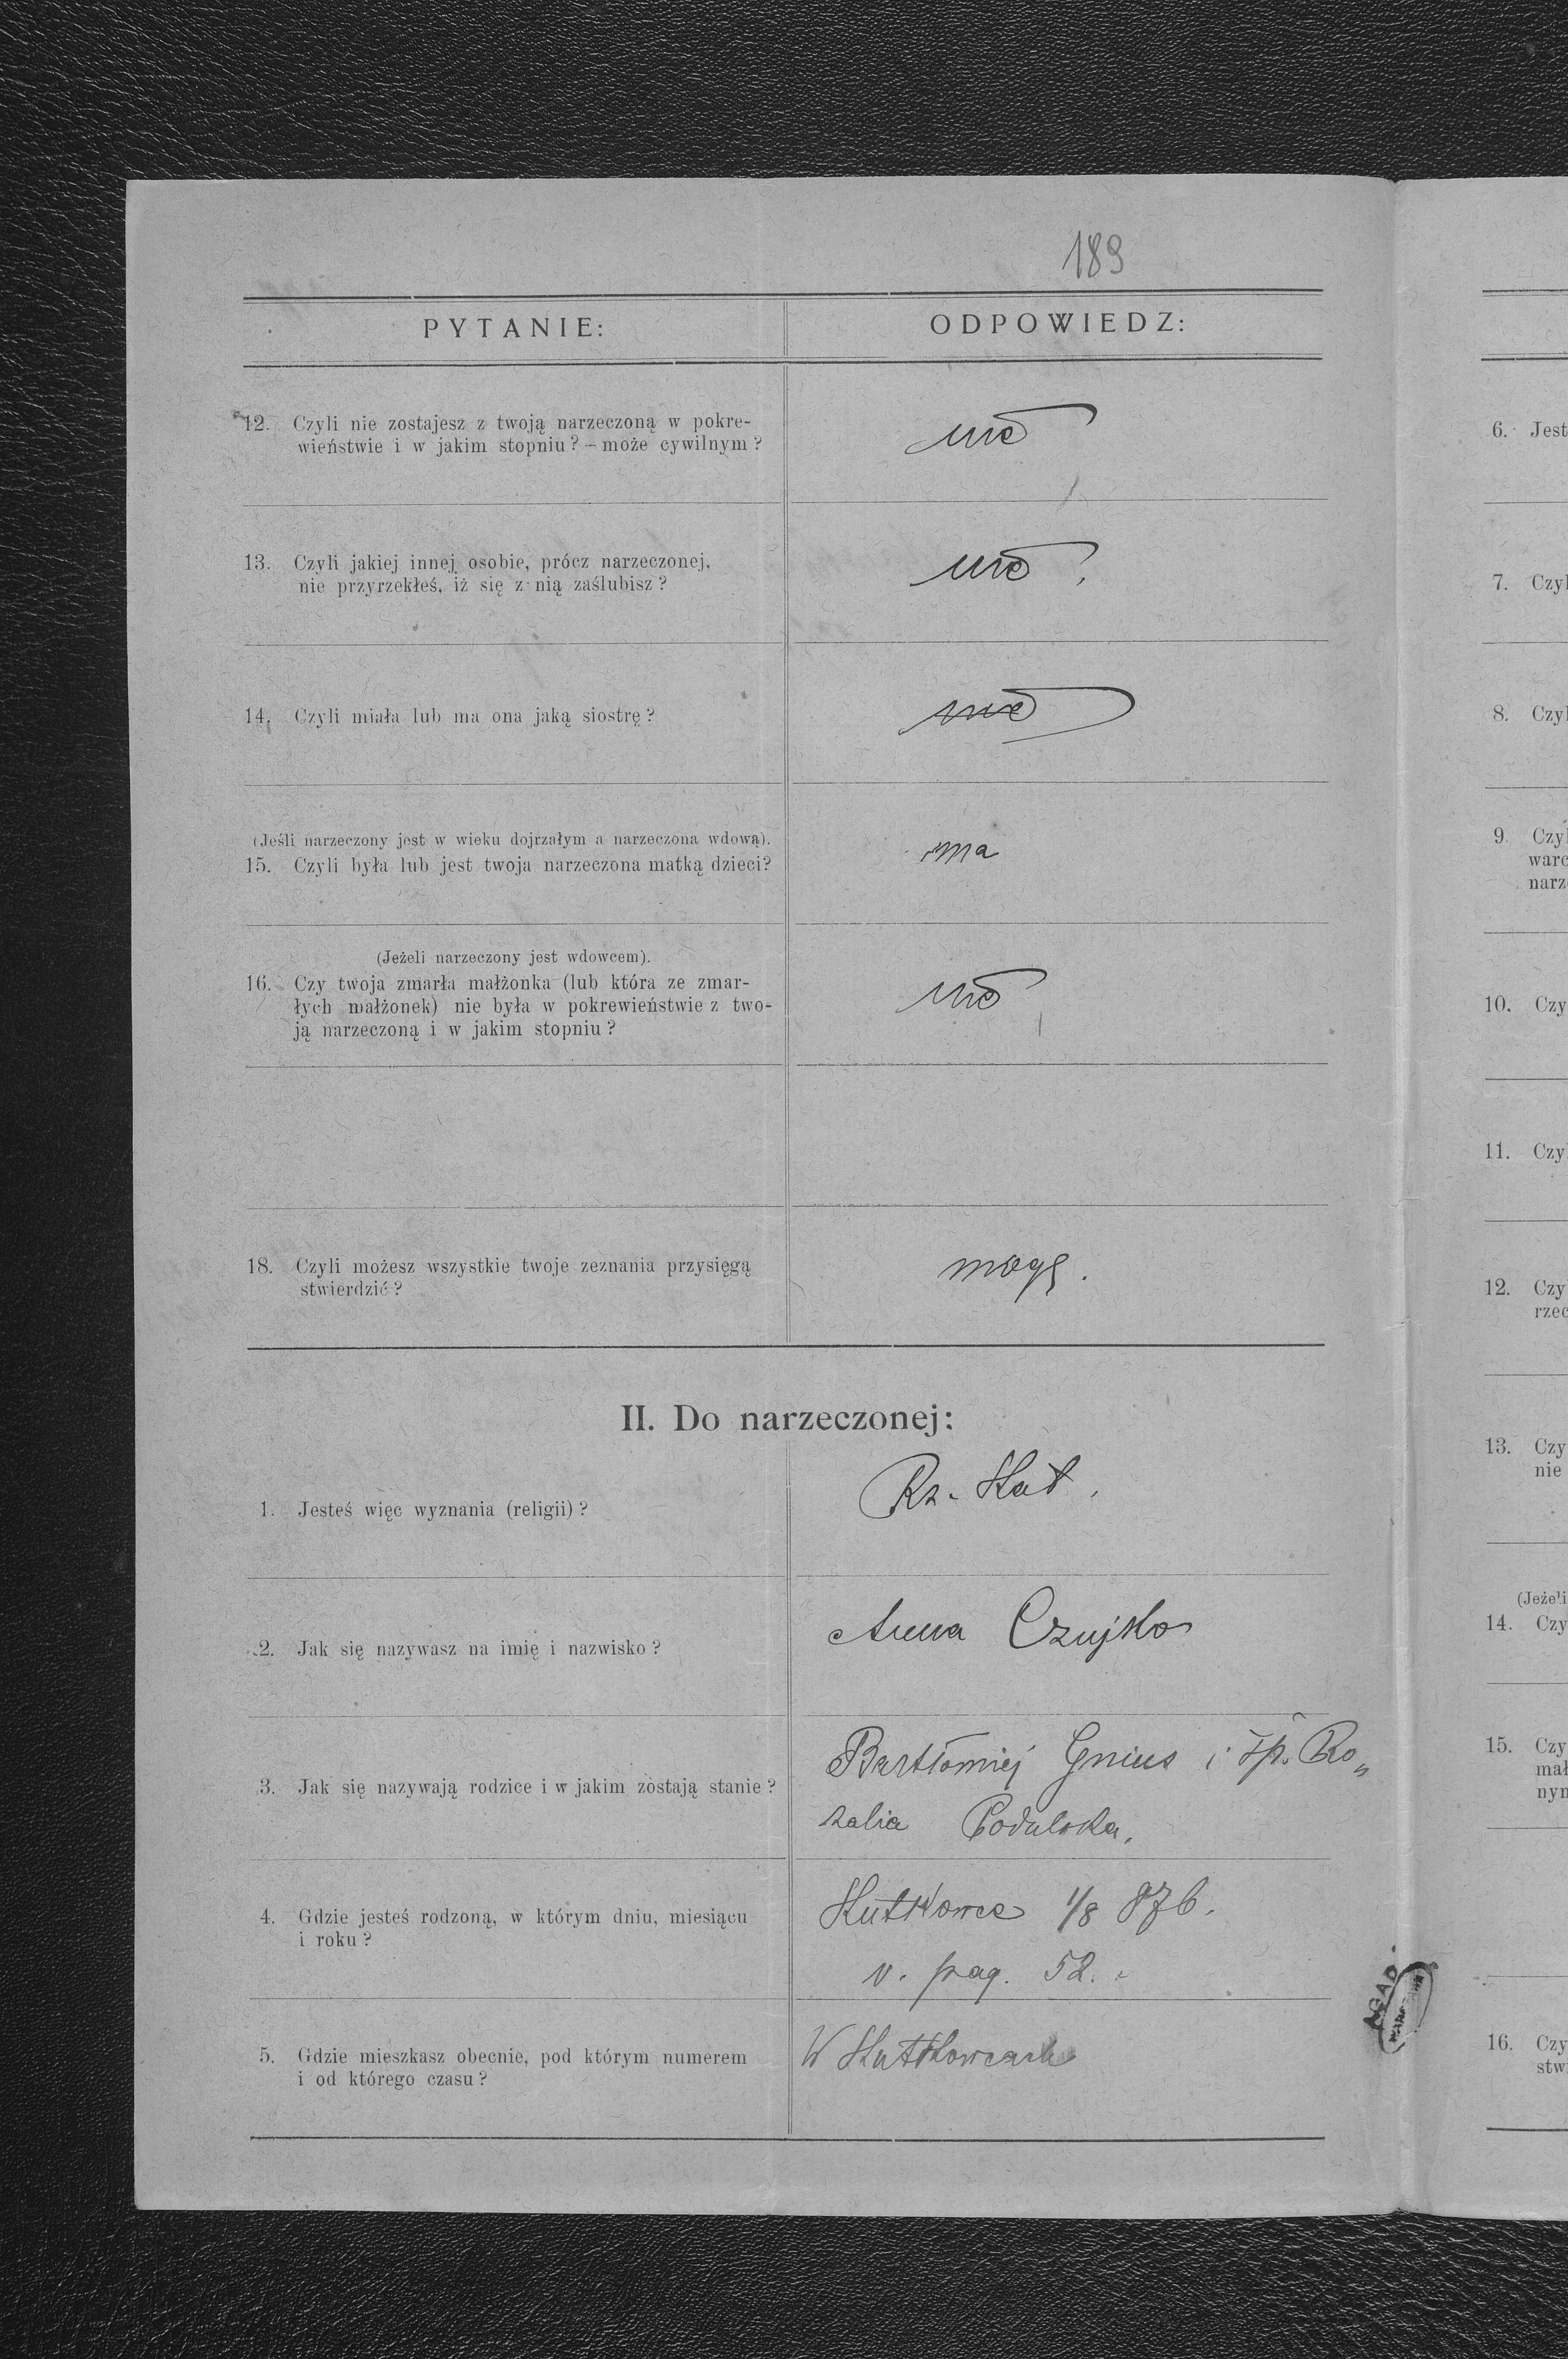 189
PYTANIE:
ODPOWIEDZ:
12. Czyli nie zostajesz z twoją narzeczoną w pokre-
wieństwie i w jakim stopniu? — może cywilnym?
nie
13. Czyli jakiej innej osobie, prócz narzeczonej,
nie przyrzekłeś, iż się z nią zaślubisz?
nie.
14. Czyli miała lub ma ona jaką siostrę?
nie
(Jeśli narzeczony jest w wieku dojrzałym a narzeczona wdową).
15. Czyli była lub jest twoja narzeczona matką dzieci?
ma
(Jeżeli narzeczony jest wdowcem).
16. Czy twoja zmarła małżonka (lub która ze zmar-
łych małżonek) nie była w pokrewieństwie z two-
ją narzeczoną i w jakim stopniu?
nie
18. Czyli możesz wszystkie twoje zeznania przysięgą
stwierdzić?
mogę.
II. Do narzeczonej:
1. Jesteś więc wyznania (religii)?
Rz. Kat.
2. Jak się nazywasz na imię i nazwisko?
Anna Czujko
3. Jak się nazywają rodzice i w jakim zostają stanie?
Bartłomiej Gnius i śp. Ro„
zalia
4. Gdzie jesteś rodzoną, w którym dniu, miesiącu
i roku?
Kutkowce 1/8 876.
v. pag. 52.
5. Gdzie mieszkasz obecnie, pod którym numerem
i od którego czasu?
W Kutkowcach
AGAD
6. Jest
7. Czyl
8. Czyl
9 Czyl
warc
narz
10. Czy
11. Czy
12. Czy
rzec
13. Czy
nie
(Jeżeli
14. Czy
15. Czy
mał
nyn
16. Czy
stw